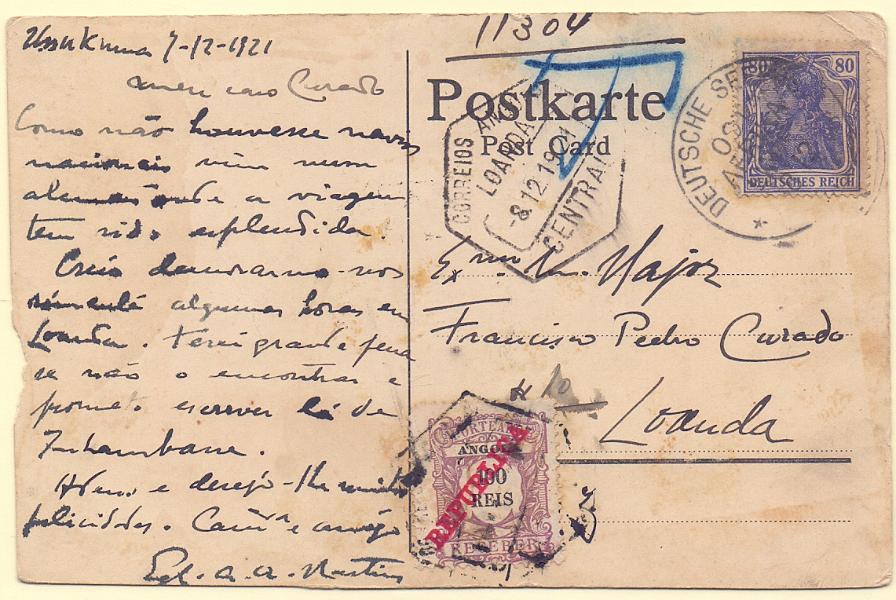 Ussukuma 7-12-1921
meu caro Curado
Como não houvesse navios
nacionais vim num
alemão onde a viagem
tem sido esplendida.
Creio demorarmo-nos
sómente algumas horas em
Loanda. Terei grande pena
se não o encontrar e
promet. escrever lá de
Inhambane.
Adeus e desejo-lhe muitas
felicidades. Cam.ª e amigo
Ed. A. A. Martins
11304
Postkarte
Post Card
CORREIOS
LOANDA
-8.12.1921
CENTRAL
DEUTSCHE SE
OST
AFRIKA
80 80
DEUTSCHES REICH
Exmo Sr. Major
Francisco Pedro Curado
Loanda
T
10
PORTEADO
ANGOLA
100
REIS
REPUBLICA
RECEBER